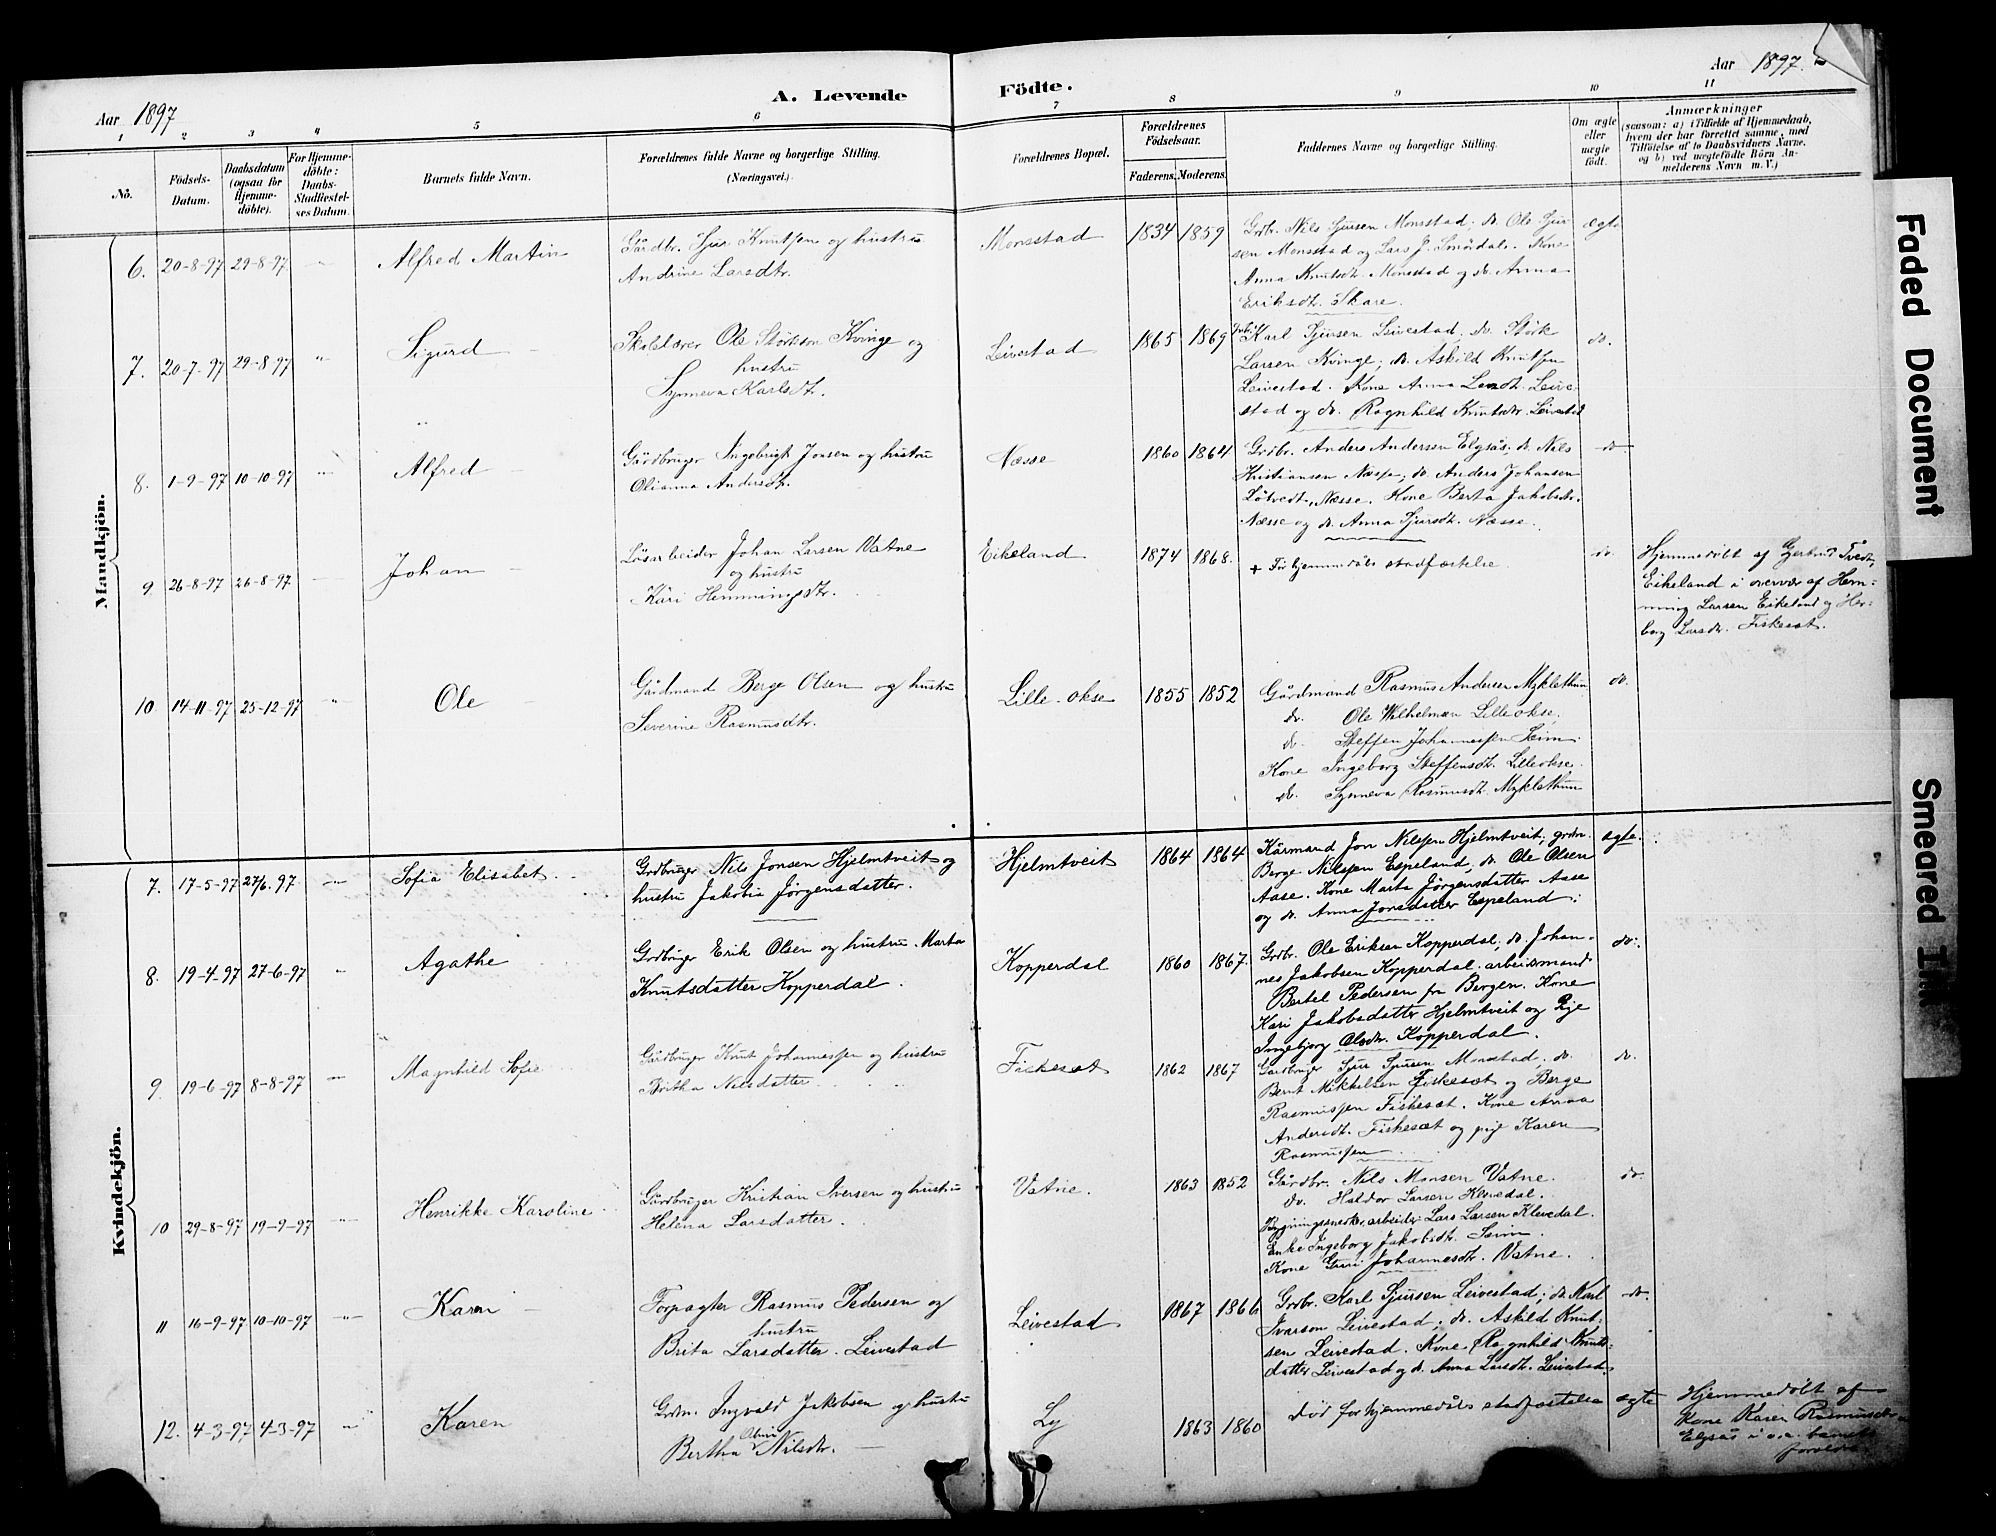 Aar 1897
A. Levende Födte.
Aar 1897.
1 2 3 4 5 6 7 8 9 10 11
No.
Födsels-Datum.
Daabsdatum (ogsaa for Hjemme-döbte).
For Hjemme-döbte: Daabs-Stadfæstel-ses Datum.
Barnets fulde Navn.
Forældrenes fulde Navne og borgerlige Stilling.
(Næringsvei.)
Forældrenes Bopæl.
Forældrenes Födselsaar.
Faderens. Moderens.
Faddernes Navne og borgerlige Stilling.
Om ægte eller uægte födt.
Anmærkninger
(saasom: a) i Tilfælde af Hjemmedaab,
hvem der har forrettet samme, med
Tilföielse af to Daabsvidners Navne.
og b) ved uægtefödte Börn An-
melderens Navn m. V.)
Mandkjön.
6. 20-8-97 29-8-97 Alfred Martin
Gårdbr. Sjur Knutsen og hustru
Andrine Larsdtr.
Monsstad 1834 1859
Grdb. Nils Sjursen Monsstad; do. Ole Sjur
sen Monsstad og Lars J. Smördal. Kone
Anna Knutsdtr. Monsstad og do. Anna
Eriksdtr. Skare.
ægte
7. 20-7-97 29-8-97 " Sigurd
Skolelærer Ole Störkson Kvinge og
hustru
Synneva Karlsdtr.
Leivestad 1865 1869
Karl Sjursen Leivestad, do. Störk
Larsen Kvinge; do. Askild Knutsen
Leivestad. Kone Anna Larsdtr. Leive
stad og do. Ragnhild Knutsdtr. Leivestad
do.
8. 1-9-97 10-10-97 Alfred
Gårdbruger Ingebrigt Jonsen og hustru
Olianna Andersdtr.
Næsse 1860 1864
Grdbr. Anders Andersen Elgsås; do. Nils
Kristiansen Næsse; do. Anders Johansen
Lötvedt, Næsse. Kone Berta Jakobsdtr.
Næsse og do. Anna Sjursdtr. Næsse.
do.
9 26-8-97 26-8-97 Johan
Lösarbeider Johan Larsen Vatne
og hustru
Kari Hemmingsdtr.
Eikeland 1874 1868.
+ För hjemmedåbs stadfæstelse.
do.
Hjemmedöbt af Gjertrud Tvedt,
Eikeland i overvær af Hem-
ming Larsen Eikeland og Her-
borg Larsdtr. Fiskesæt.
10 14-11-97 25-12-97 Ole
Gårdmand Berge Olsen og hustru
Severine Rasmusdtr.
Lille-okse 1855 1852
Gårdmand Rasmus Andersen Myklethun
do. Ole Wilhelmsen Lilleokse.
do. Steffen Johannessen Seim.
Kone Ingeborg Steffensdtr. Lilleokse.
do. Synneva Rasmusdtr. Myklethun
do.
Kvindekjön.
7. 17-5-97 27/6.97 Sofia Elisabet
Grdbruger Nils Jonsen Hjelmtveit og
hustru Jakobia Jörgensdatter.
Hjelmtveit 1864 1864
Kårmand Jon Nilssen Hjelmtveit; grdm.
Berge Nilssen Espeland, do. Ole Olsen
Aase. Kone Marta Jörgensdatter Aase
og do. Anna Jonsdatter Espeland;
ægte.
8. 19-4-97 27-6-97 Agathe
Grdbruger Erik Olsen og hustru Marta
Knutsdatter Kopperdal.
Kopperdal 1860 1867.
Grdb. Ole Eriksen Kopperdal, do. Johan-
nes Jakobsen Kopperdal. arbeidsmand
Bertel Pedersen fra Bergen. Kone
Kari Jakobsdatter Hjelmtveit og Pige
Ingebjorg Olsdtr. Kopperdal.
do.
9. 19-6-97 8-8-97 Magnhild Sofie
Gårdbruger Knut Johannessen og hustru
Britha Nilsdatter.
Fiskesæt 1862 1867
Gårdbruger Sjur Sjursen Monstad, do.
Bernt Mikkelsen Fiskesæt og Berge
Rasmussen Fiskesæt. Kone Anna
Andersdtr. Fiskesæt og pige Karen
Rasmussen
do.
10 29-8-97 19-9-97 Henrikke Karoline
Gårdbruger Kristian Iversen og hustru
Helena Larsdatter.
Vatne. 1863 1852
Gårdbr. Nils Monsen Vatne.
do. Haldor Larsen Klevedal.
Bygningssnedker arbeider Lars Larsen Klevedal.
Enke Ingeborg Jakobsdtr. Seim.
Kone Guri Johannesdtr. Vatne.
do.
11 16-9-97 10-10-97 Karen
Forpagter Rasmus Pedersen og
hustru
Brita Larsdatter. Leivestad
Leivestad 1867 1866
Grdbr. Karl Sjursen Leivestad; do. Karl
Ivarson Leivestad; do. Askild Knut-
sen Leivestad. Kone Ragnhild Knuts-
datter Leivestad og do. Anna Larsdtr. Leivestad
do.
12. 4-3-97 4-3-97 Karen
Grdm. Ingvald Jakobsen og hustru
Bertha Oline Nilsdtr.
Ly 1863 1860
Död för hjemmedåbs stadfæstelse
ægte
Hjemmedöbt af
Kone Karen Rasmusdtr.
Elgsås i o.a. barnets
forældre
Faded Document
Smeared Ink